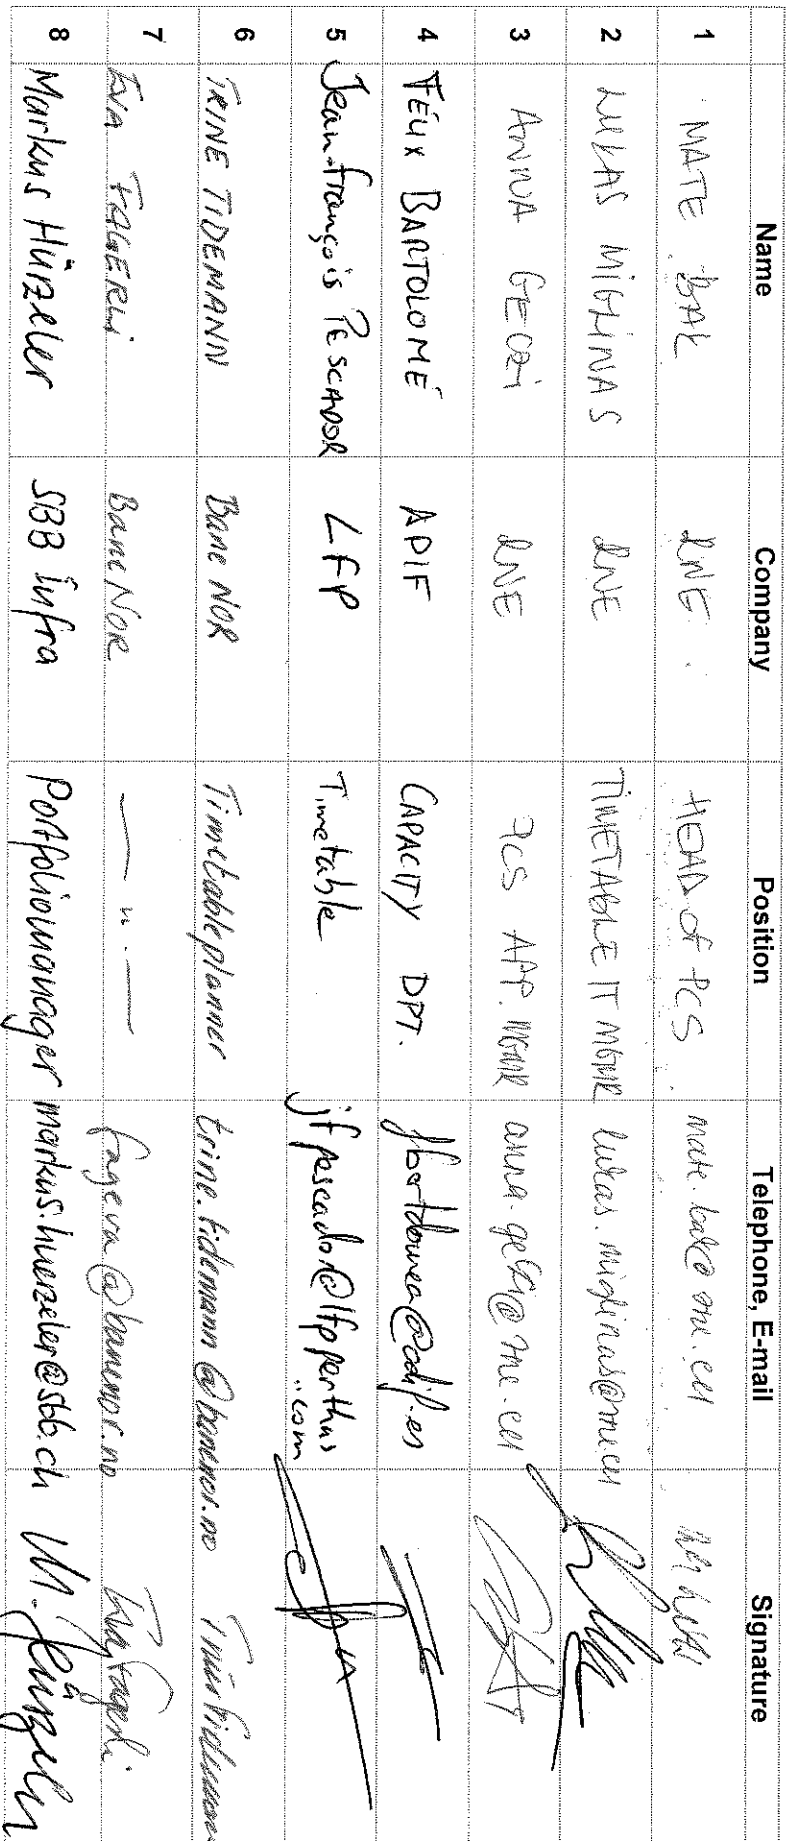 Name Company Position Telephone, E-mail Signature
1 MATE BAK RNE HEAD of PCS mate.bak@rne.eu
2 LUKAS MIGLINAS RNE TIMETABLE IT MGMR lukas.miglinas@rne.eu
3 ANNA GECZI RNE PCS APP. MGMR anna.geczi@rne.eu
4 FÉLIX BARTOLOMÉ ADIF CAPACITY DPT. fbartolomea@adif.es
5 Jean-françois PESCADOR LFP Timetable jfpescador@lfpperthus
.com
6 TRINE TIDEMANN Bane NOR Timetableplanner trine.tidemann@banenor.no Trine Tidemann
7 EVA FAGERLI Bane NOR — " — fageva@banenor.no Eva Fagerli
8 Markus Hürzeler SBB Infra Portfoliomanager markus.huerzeler@sbb.ch M. Hürzeler